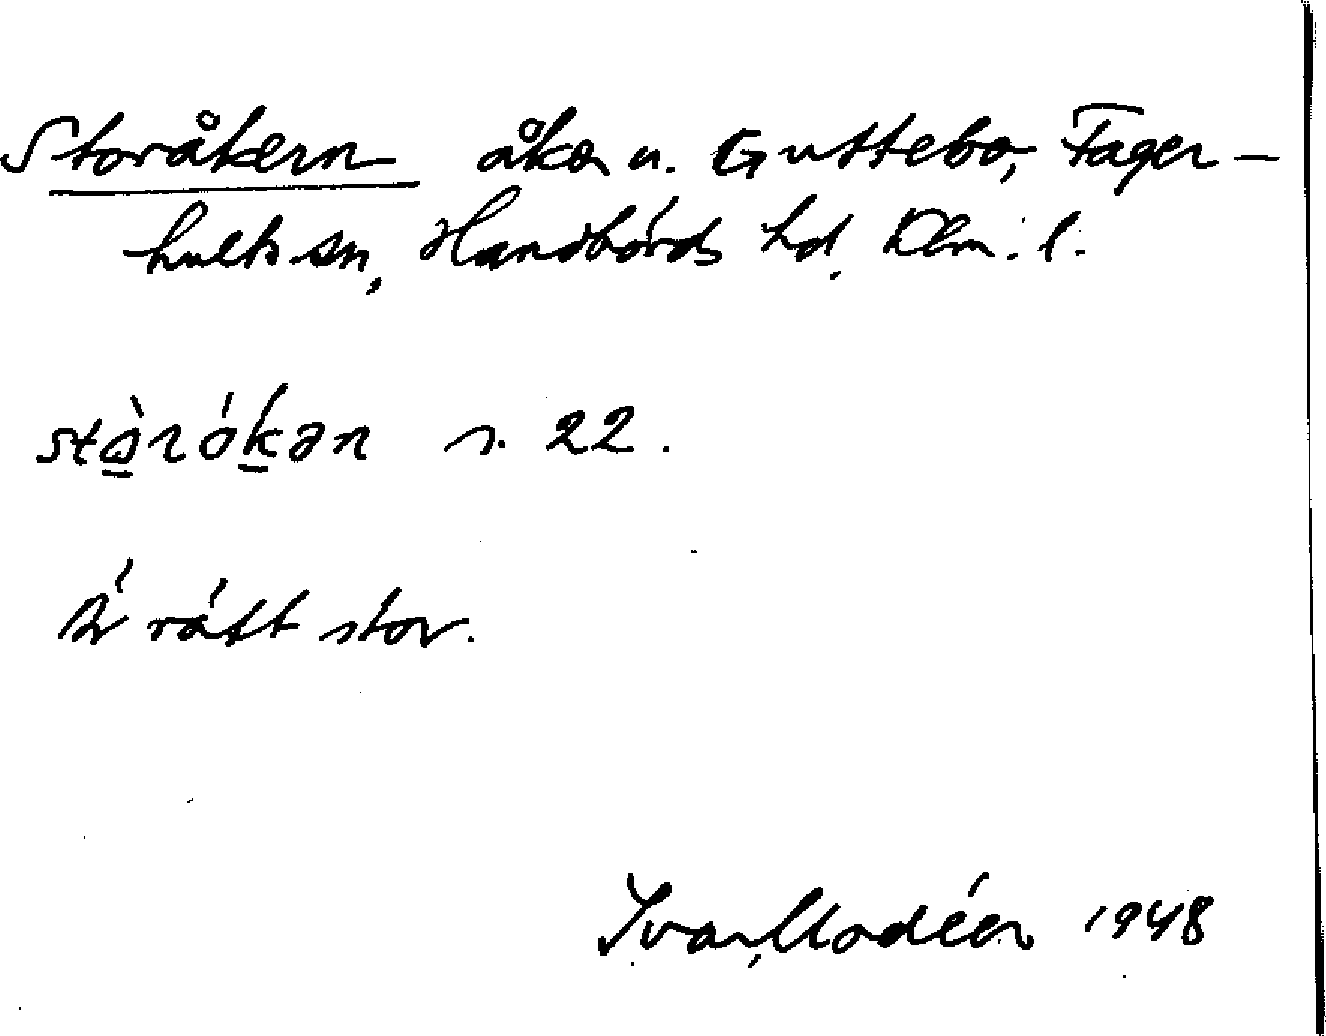 Storåkern åker u. Guttebo, Fager-
hults sn, Handbörds hd, Klm. l.
stò̱róḵən s. 22.
Är rätt stor.
Ivar Modéer 1948